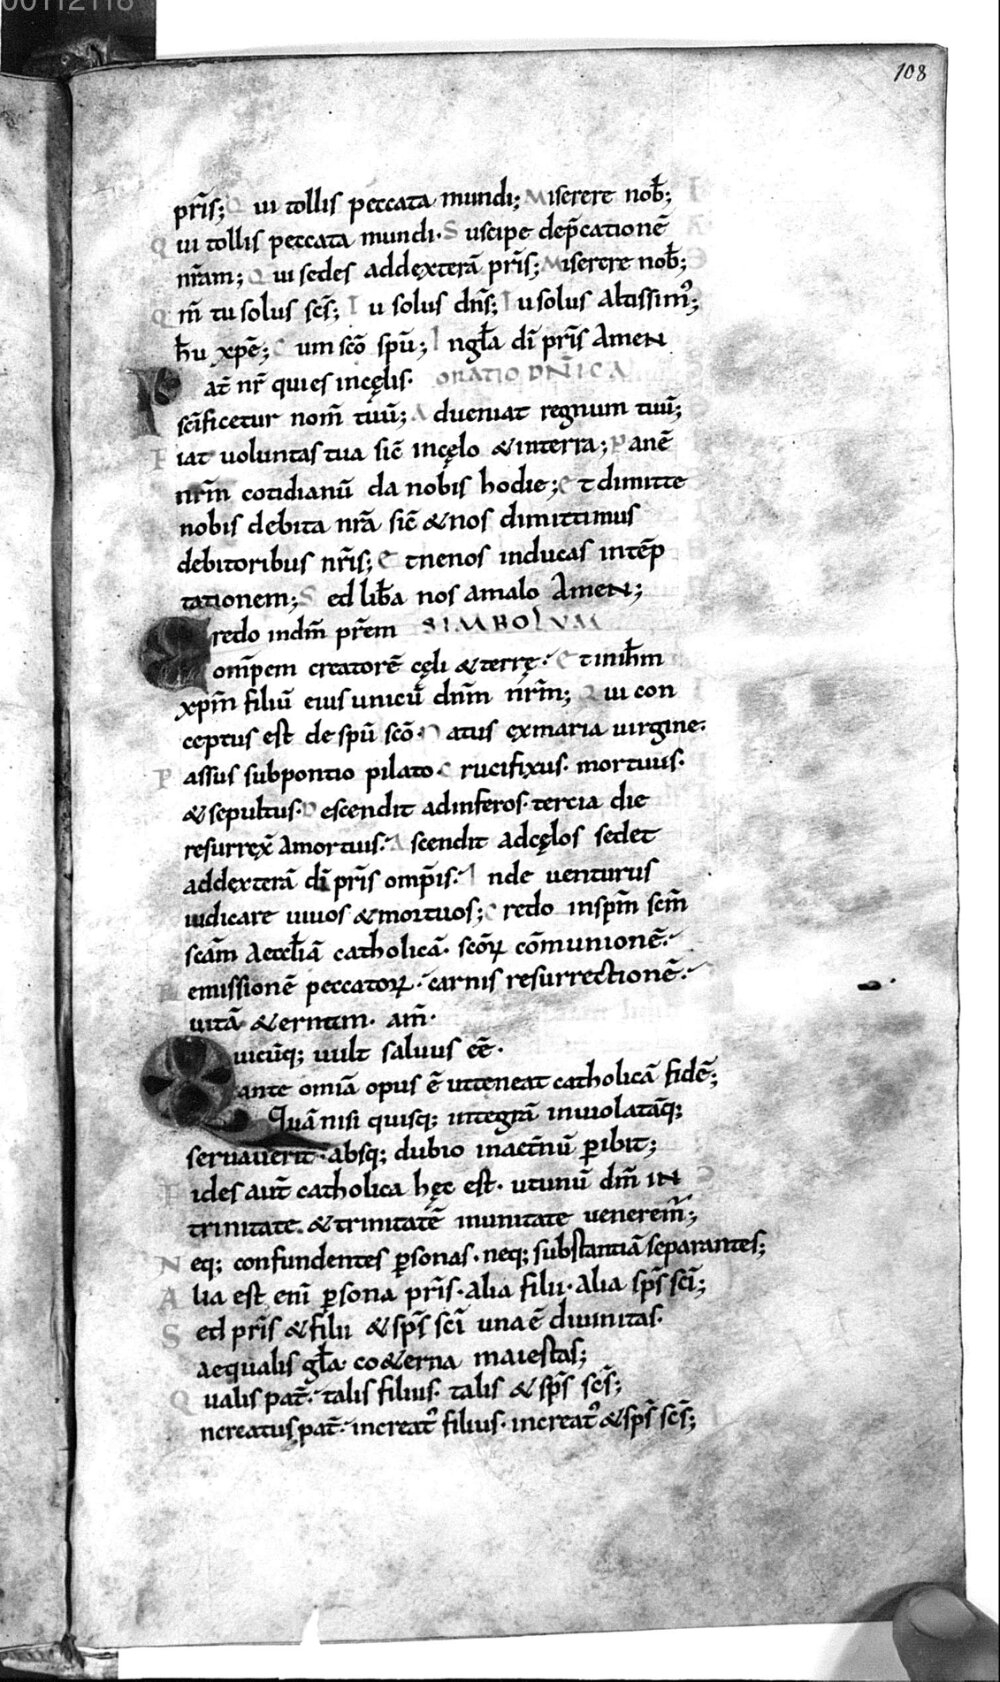 00112118
108
pr̄is; Qui tollis peccata mundi; Miserere nob̄;
Qui tollis peccata mundi. Suscipe dep̄cationē
nr̄am; Qui sedes addexterā pr̄is; Miserere nob̄;
Qm̄ tu solus sc̄s; Tu solus dn̄s; Tu solus Altissim᾿;
ih̄u xp̄e; Cum sc̄o sp̄u; In gl̄a dī pr̄is AmeN
Pat̄ nr̄ qui es incęlis. ORATIO DN̄ICA
sc̄ificetur nom̄ tuū; Adueniat regnum tuū;
Fiat uoluntas tua sic̄ incęlo &interra; Panē
nr̄m cotidianū da nobis hodie; Et dimitte
nobis debita nr̄a sic̄ &nos dimittimus
debitoribus nr̄is; Et nenos inducas intēp
tationem; Sed lib̄a nos amalo AmeN;
Credo indm̄ pr̄em SIMBOLVM
om̄pem creatorē cęli &terrę. Et inih̄m
xp̄m filiū eius unicū dn̄m nr̄m; Qui con
ceptus est de sp̄u sc̄o. Natus exmaria uirgine.
Passus subpontio pilato. Crucifixus. mortuus.
&sepultus. Descendit adinferos. tercia die
resurrex̄ Amortuis. Ascendit adcęlos sedet
addexterā dī pr̄is omp̄is. Inde uenturus
iudicare uiuos &mortuos; Credo inspm̄ sc̄m
sc̄am Aeccl̄iā catholicā. sc̄oꝝ cōmunionē.
Remissionē peccatoꝝ. carnis resurrectionē.
uitā &ernam. am̄.
Quicūq; uult saluus eē.
ante omiā opus ē utteneat catholicā fidē;
Quā nisi quisq; integrā inuiolatāq;
seruauerit. absq; dubio inaet̄nū ꝑibit;
Fides aut̄ catholica hęc est. utunū dm̄ iN
trinitate. &trinitatē inunitate uenerem̄;
Neq; confundentes ꝑsonas. neq; substantiā separantes;
Alia est enī ꝑsona pr̄is. alia filii. alia sp̄s sc̄i;
Sed pr̄is &filii &sp̄s sc̄i una ē diuinitas.
aequalis gl̄a. co&erna maiestas;
Qualis pat̄. talis filius. talis &sp̄s sc̄s;
ncreatus pat̄. increat᾿ filius. increat᾿ &sp̄s sc̄s;